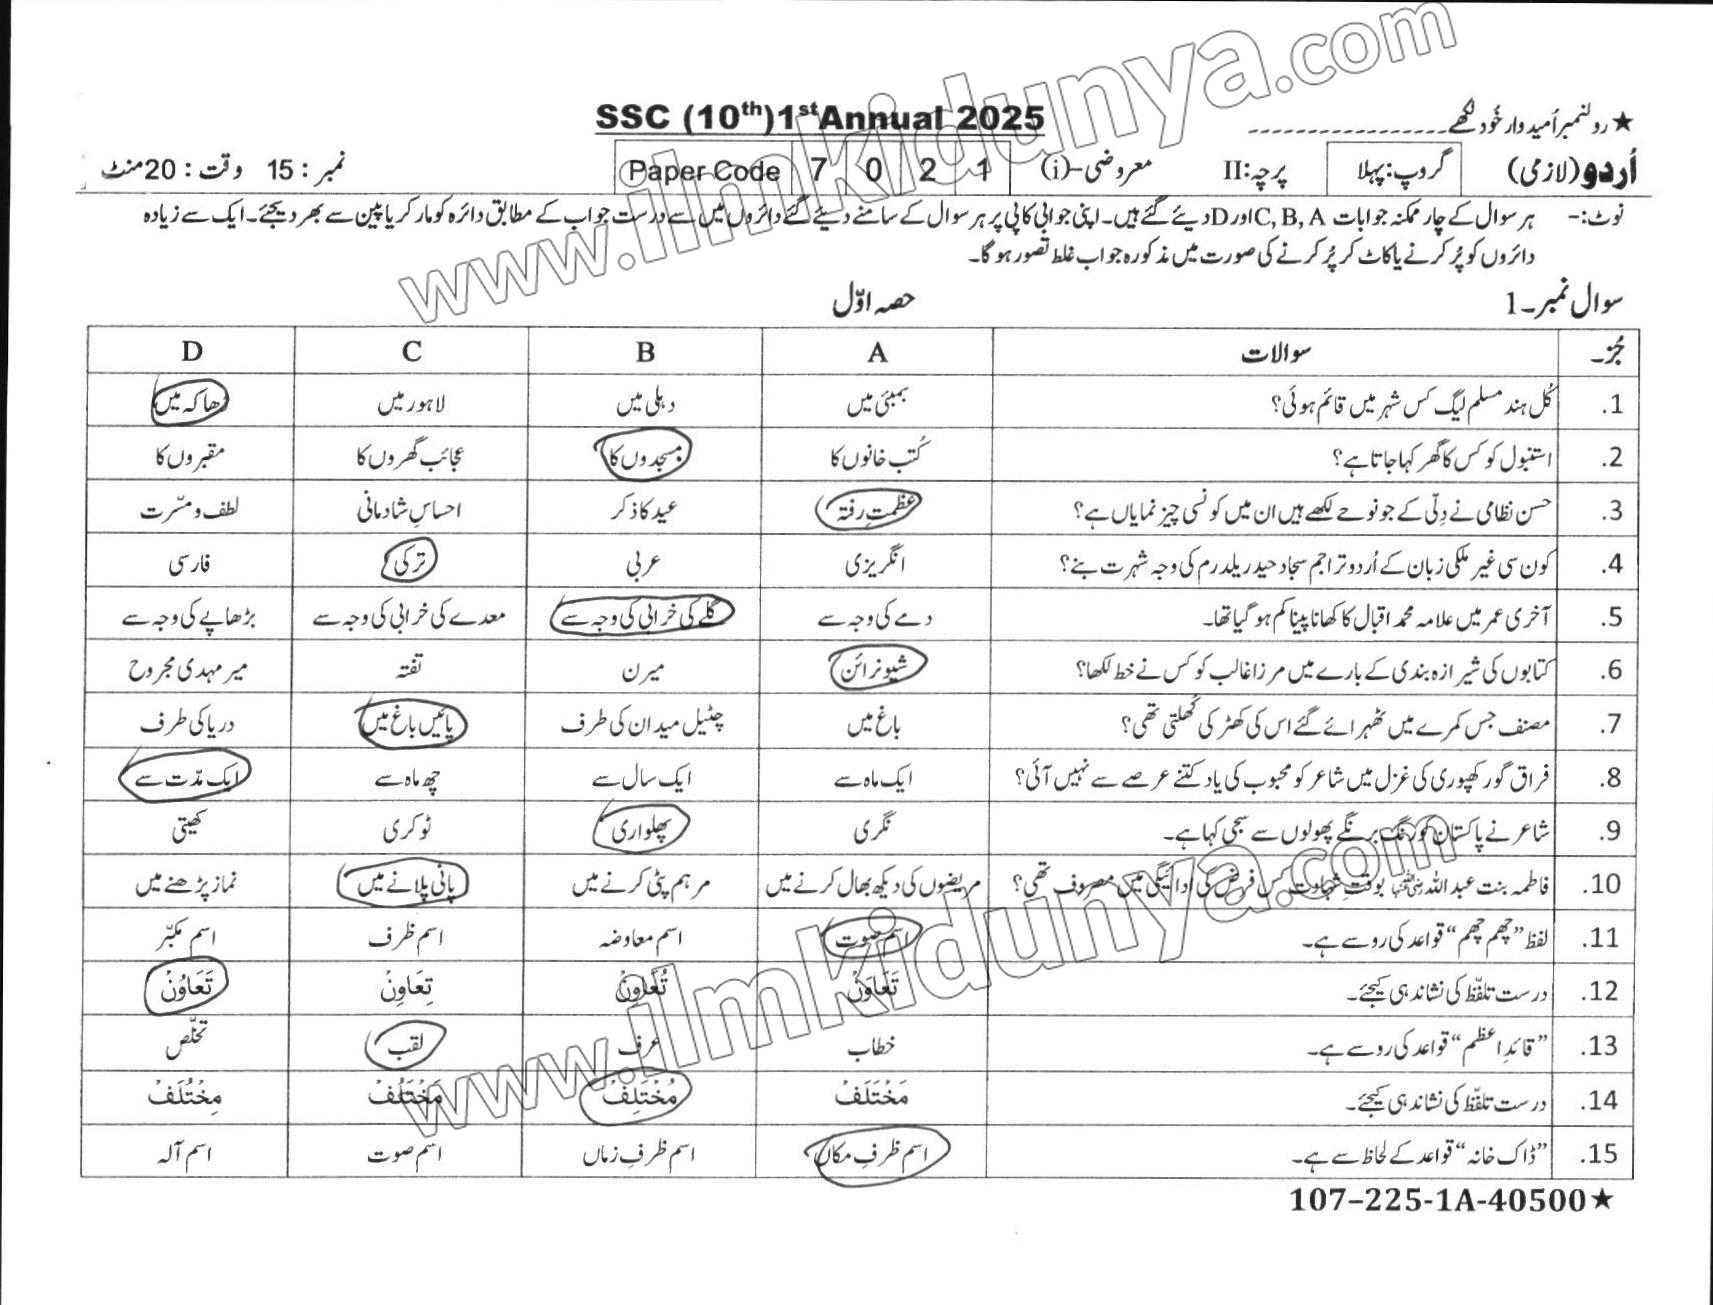 SSC (10th)1st Annual 2025
★ رولنمبر اُمیدوار خُود لکھے۔----------------
اُردو (لازمی) گروپ: پہلا پرچہ: II معروضی-(i) Paper Code 7 0 2 1 وقت: 20 منٹ نمبر: 15
نوٹ:- ہر سوال کے چار ممکنہ جوابات C, B, A اور D دیئے گئے ہیں۔ اپنی جوابی کاپی پر ہر سوال کے سامنے دیئے گئے دائروں میں سے درست جواب کے مطابق دائرہ کو مارکر یا پین سے بھر دیجئے۔ ایک سے زیادہ
دائروں کو پُر کرنے یا کاٹ کر پُر کرنے کی صورت میں مذکورہ جواب غلط تصور ہو گا۔
سوال نمبر۔1 حصہ اوّل
جُز۔ سوالات A B C D
1. کُل ہند مسلم لیگ کس شہر میں قائم ہوئی؟ بمبئی میں دہلی میں لاہور میں ڈھاکہ میں
2. استنبول کو کس کا گھر کہا جاتا ہے؟ کُتب خانوں کا مسجدوں کا عجائب گھروں کا مقبروں کا
3. حسن نظامی نے دِلّی کے جو نوحے لکھے ہیں ان میں کونسی چیز نمایاں ہے؟ عظمتِ رفتہ عید کا ذکر احساسِ شادمانی لطف و مسّرت
4. کون سی غیر ملکی زبان کے اُردو تراجم سجاد حیدر یلدرم کی وجہ شہرت بنے؟ انگریزی عربی ترکی فارسی
5. آخری عمر میں علامہ محمد اقبال کا کھانا پینا کم ہو گیا تھا۔ دمے کی وجہ سے گلے کی خرابی کی وجہ سے معدے کی خرابی کی وجہ سے بڑھاپے کی وجہ سے
6. کتابوں کی شیرازہ بندی کے بارے میں مرزا غالب کو کس نے خط لکھا؟ شیونرائن میرن تفتہ میر مہدی مجروح
7. مصنف جس کمرے میں ٹھہرائے گئے اس کی کھڑکی کُھلتی تھی؟ باغ میں چٹیل میدان کی طرف پائیں باغ میں دریا کی طرف
8. فراق گورکھپوری کی غزل میں شاعر کو محبوب کی یاد کتنے عرصے سے نہیں آئی؟ ایک ماہ سے ایک سال سے چھ ماہ سے ایک مدّت سے
9. شاعر نے پاکستان کو رنگ برنگے پھولوں سے سجی کہا ہے۔ نگری پھلواری ٹوکری کھیتی
10. فاطمہ بنت عبداللہ بوقتِ شہادت کس فرض کی ادائیگی میں مصروف تھی؟ مریضوں کی دیکھ بھال کرنے میں مرہم پٹی کرنے میں پانی پلانے میں نماز پڑھنے میں
11. لفظ ”چھم چھم“ قواعد کی رو سے ہے۔ اسم صوت اسم معاوضہ اسم ظرف اسم مکبّر
12. درست تلفّظ کی نشاندہی کیجئے۔ تَعَاوَنْ تُعَاوِنْ تِعَاوِنْ تَعَاوُنْ
13. ”قائدِ اعظم“ قواعد کی رو سے ہے۔ خطاب عرف لقب تخلّص
14. درست تلفّظ کی نشاندہی کیجئے۔ مَخْتَلَفْ مُخْتَلِفْ مَخْتَلُفْ مِخْتُلَفْ
15. ”ڈاک خانہ“ قواعد کے لحاظ سے ہے۔ اسم ظرفِ مکاں اسم ظرفِ زماں اسم صوت اسم آلہ
107-225-1A-40500★
www.ilmkidunya.com
www.ilmkidunya.com